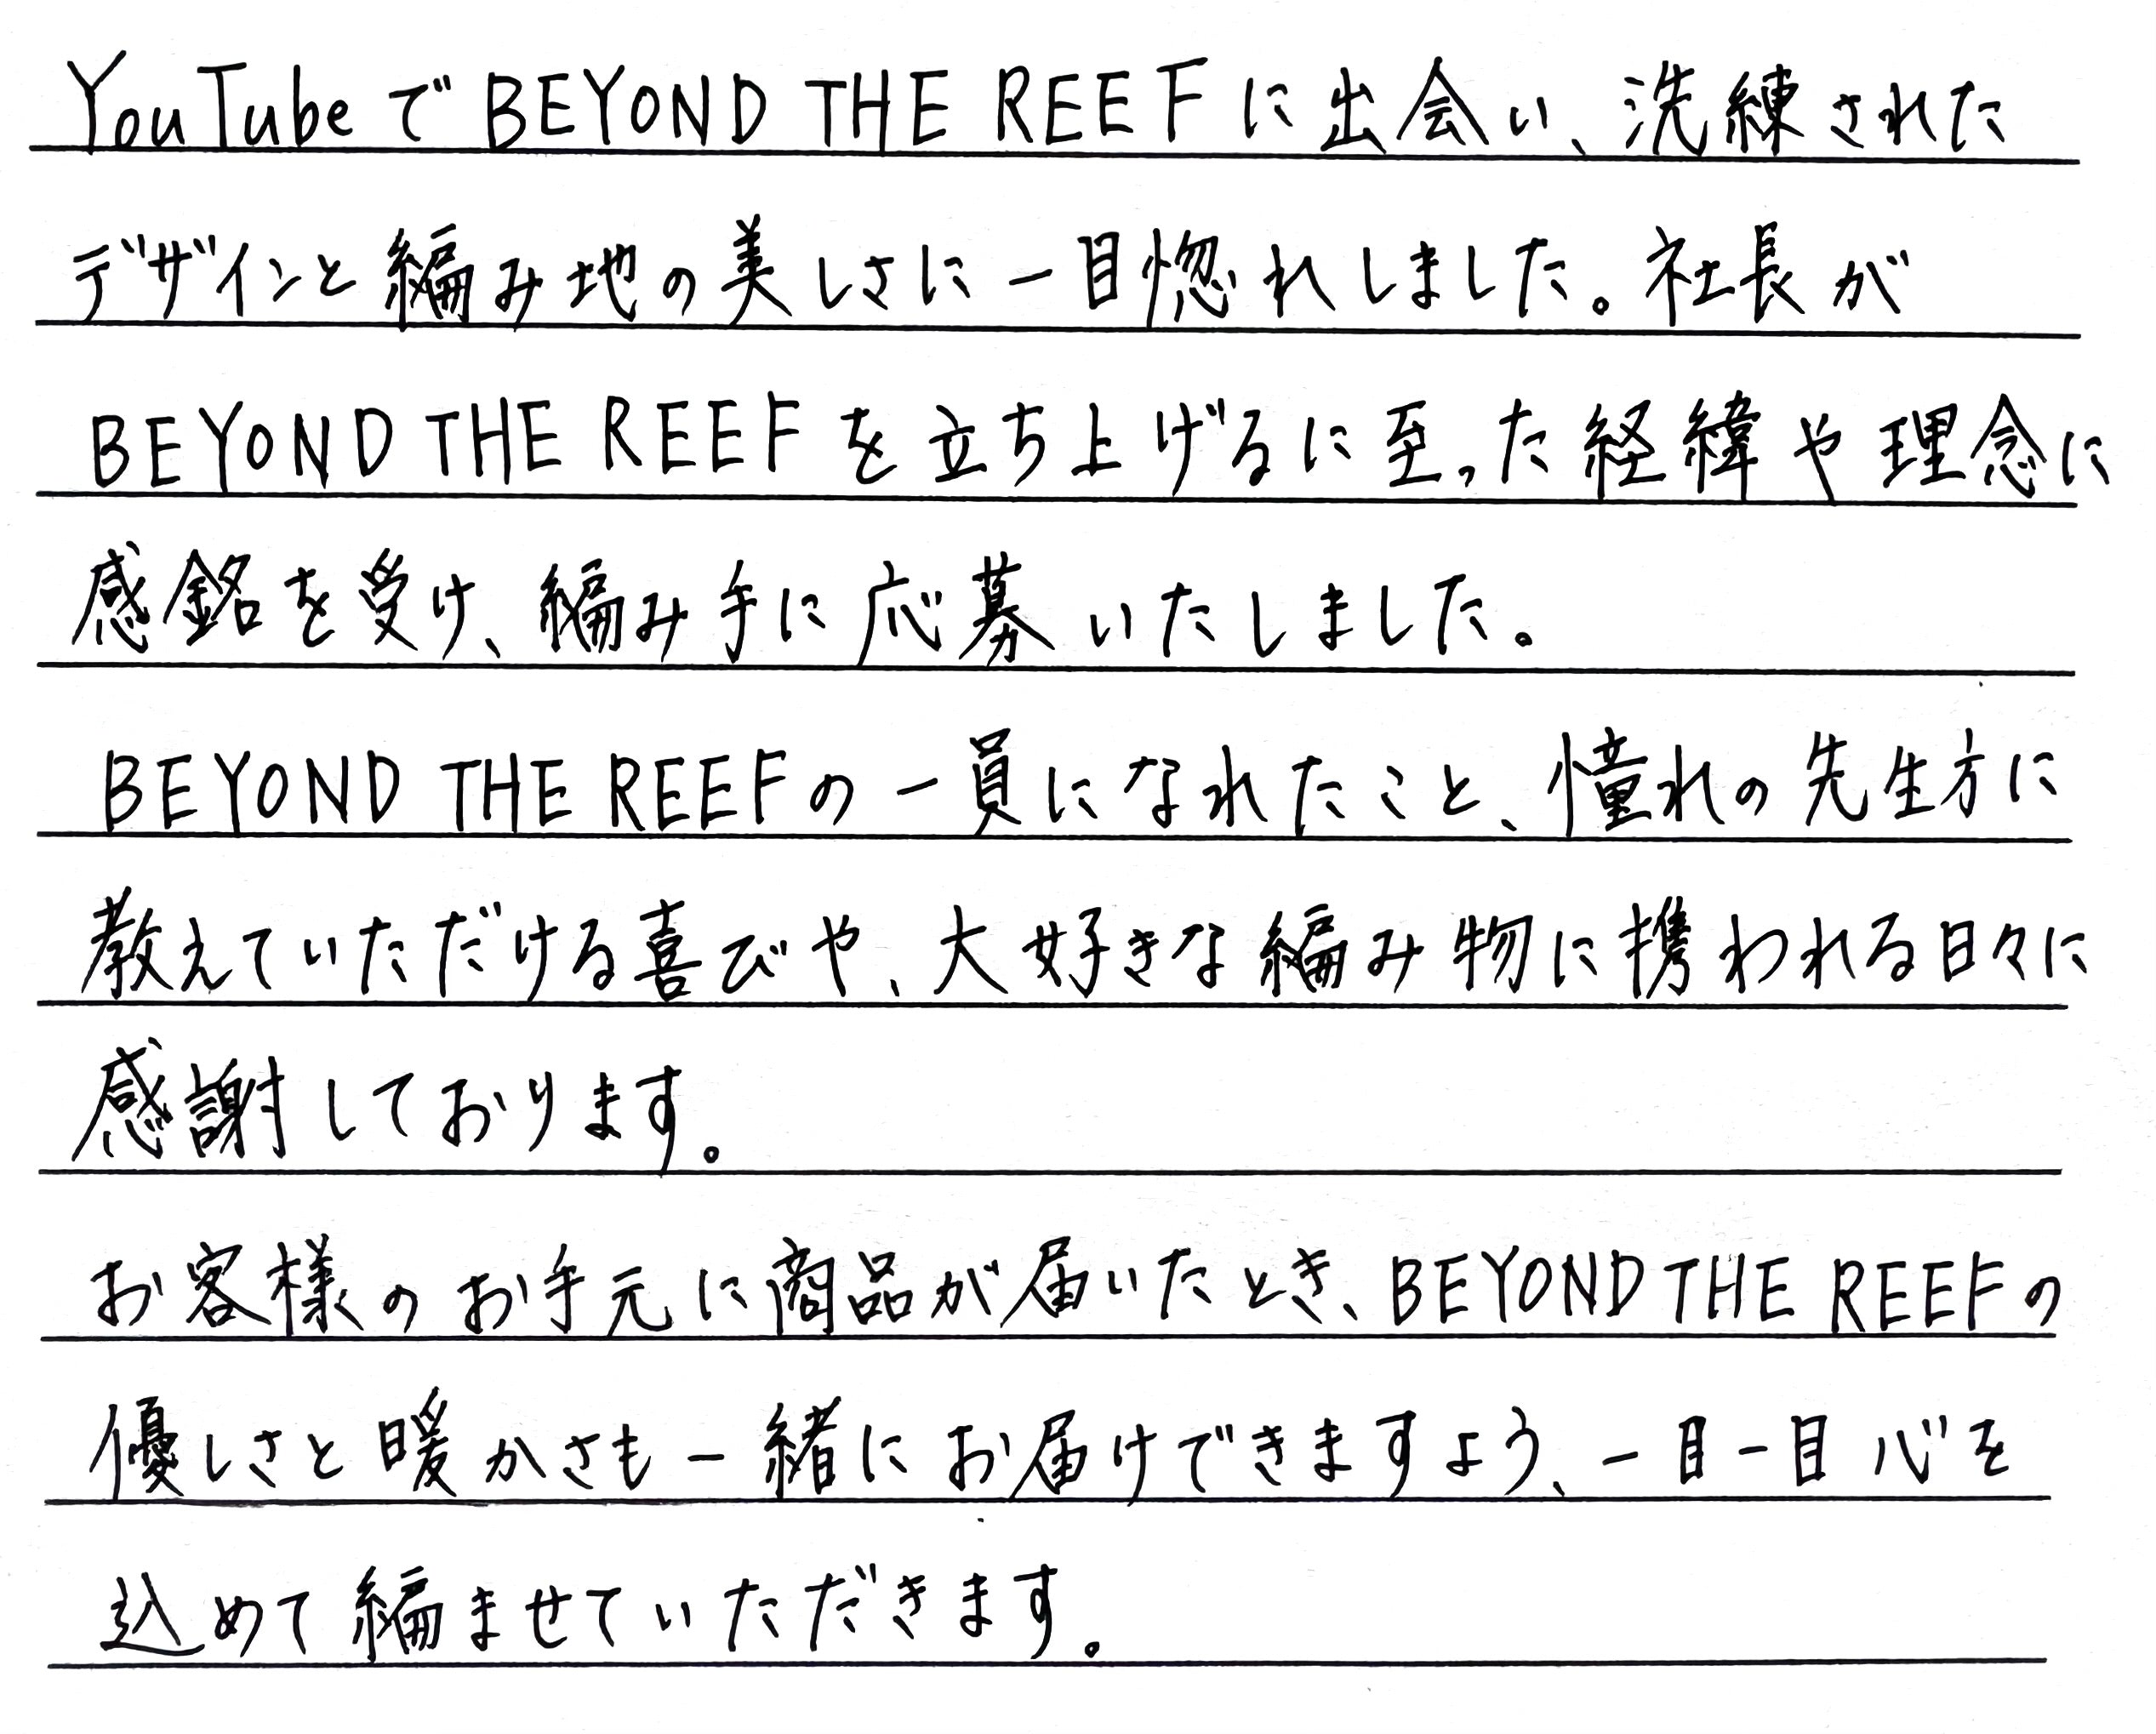 YouTubeでBEYOND THE REEFに出会い、洗練された
デザインと編み地の美しさに一目惚れしました。社長が
BEYOND THE REEFを立ち上げるに至った経緯や理念に
感銘を受け、編み手に応募いたしました。
BEYOND THE REEFの一員になれたこと、憧れの先生方に
教えていただける喜びや、大好きな編み物に携われる日々に
感謝しております。
お客様のお手元に商品が届いたとき、BEYOND THE REEFの
優しさと暖かさも一緒にお届けできますよう、一目一目心を
込めて編ませていただきます。